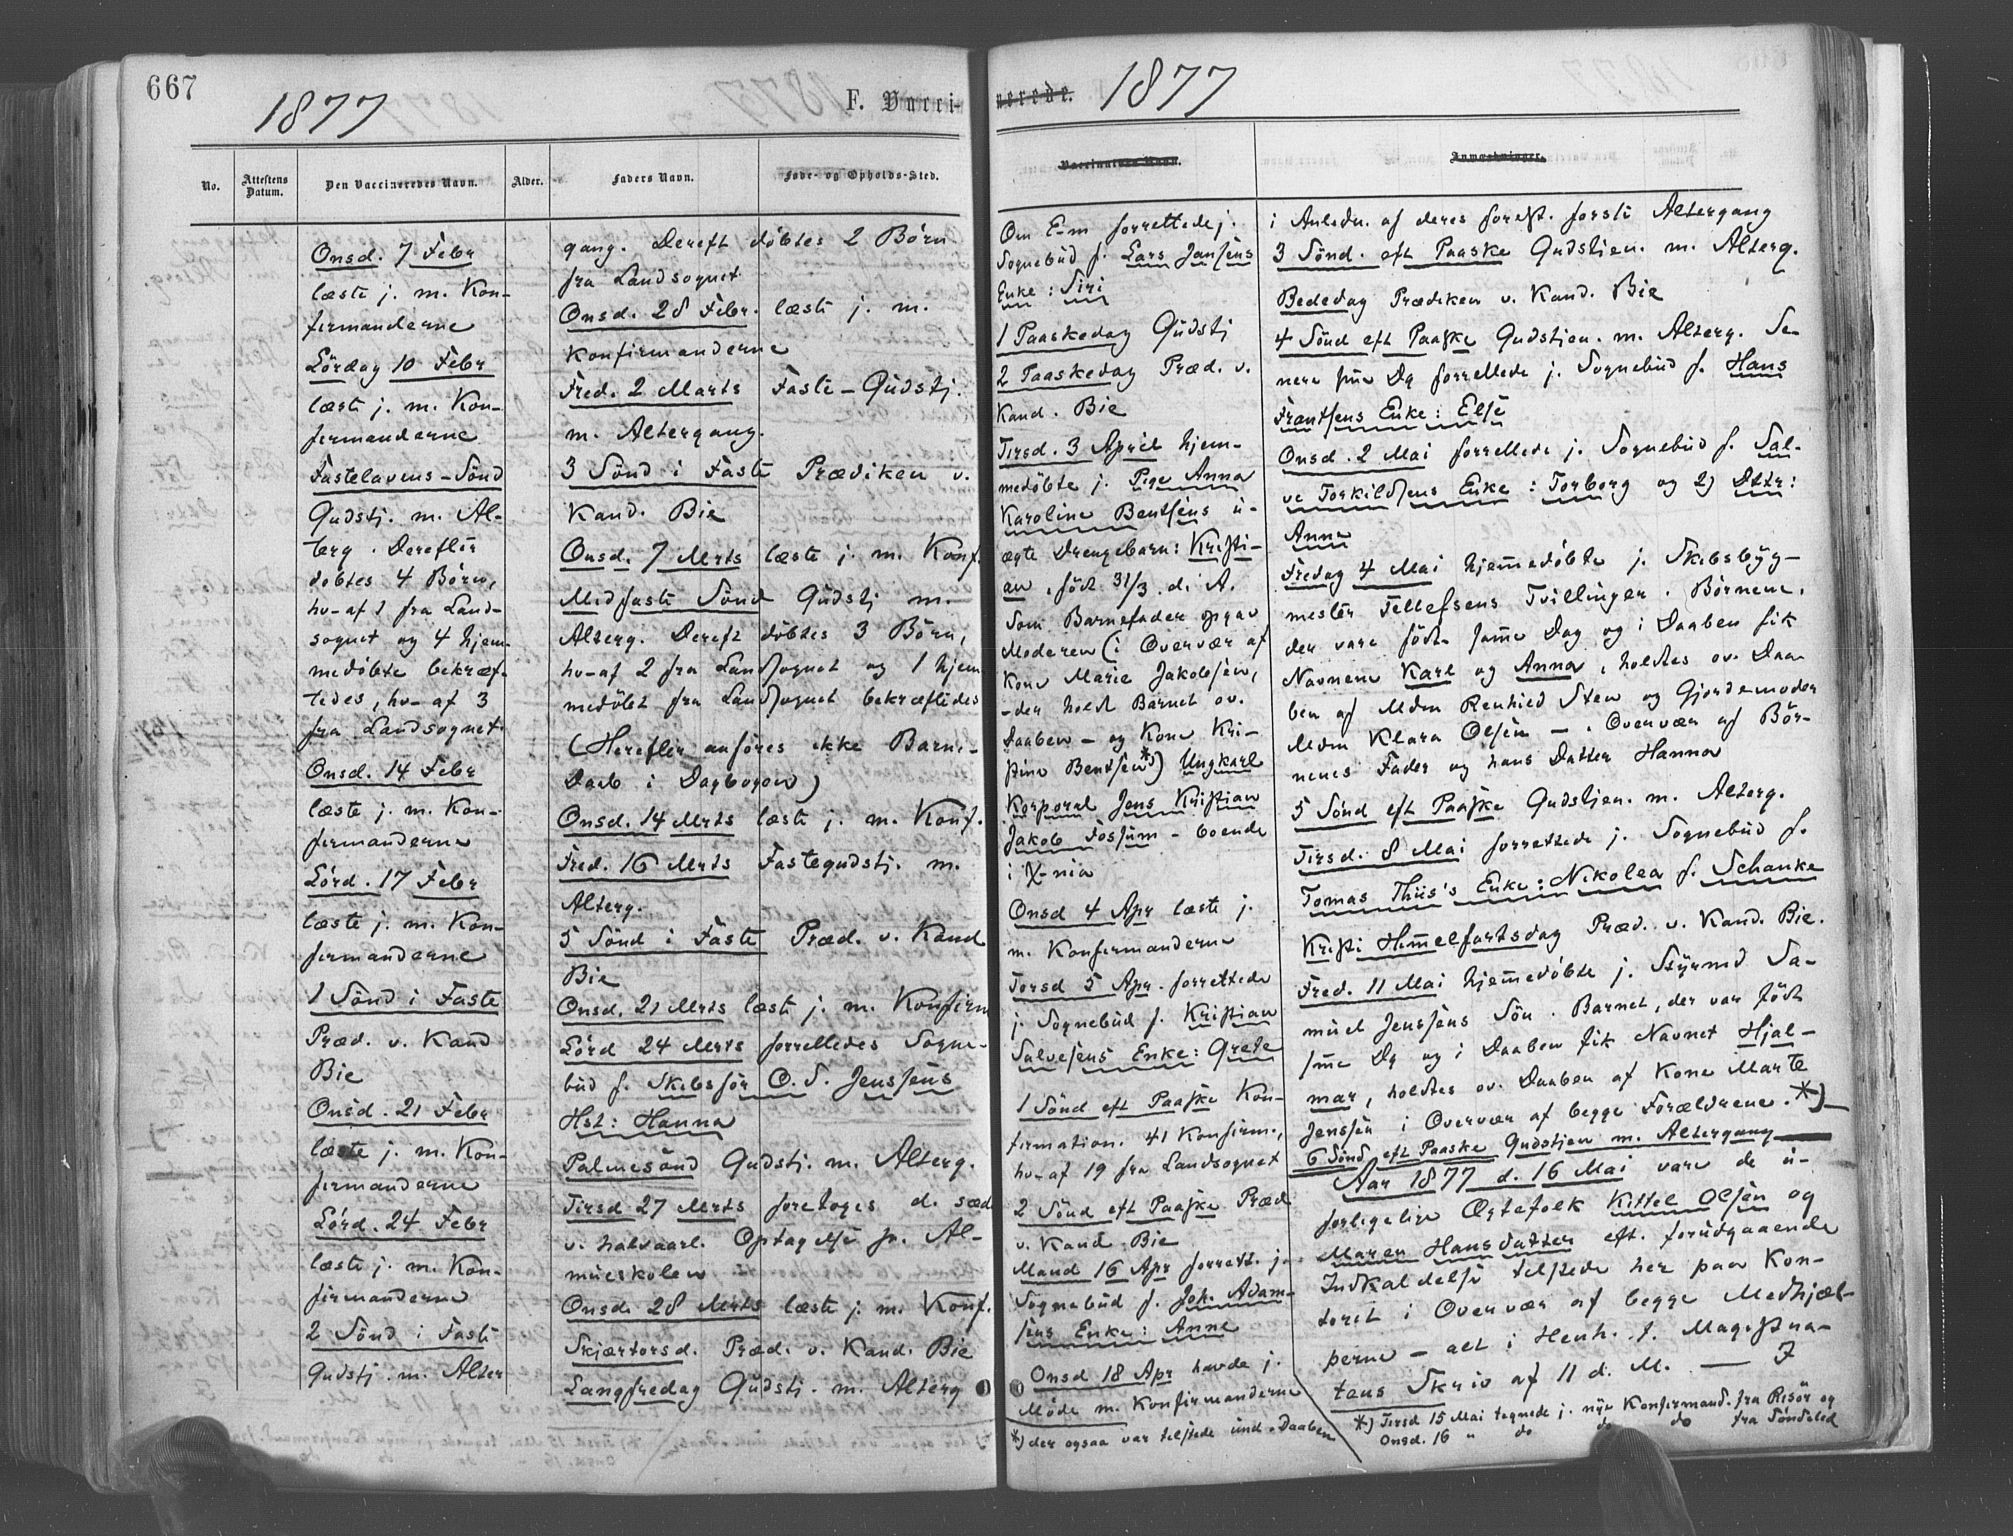 667
1877
F. Vacci-
No.
Attestens Datum.
Den Vaccineredes Navn.
Alder.
Faders Navn.
Føde- og Opholds-Sted.
Onsd. 7 Febr
læste j. m. Kon-
firmanderne
Lördag 10 Febr
læste j. m. Kon-
firmanderne
Fastelavens-Sönd
Gudstj. m. Al-
terg. Derefter
döbtes 4 Börn,
hv-af 1 fra Land-
sognet og 4 hjem-
medöbte bekræf-
tedes, hv-af 3
fra Landsognet
Onsd. 14 Febr
læste j. m. Kon-
firmanderne
Lörd. 17 Febr
læste j. m. Kon-
firmanderne
1 Sönd i Faste
Præd. v. Kand
Bie
Onsd. 21 Febr
læste j. m. Kon-
firmanderne
Lörd. 24 Febr
læste j. m. Kon-
firmanderne
2 Sönd i Faste
Gudstj. m. Alter
gang. Dereft döbtes 2 Börn
fra Landsognet
Onsd. 28 Febr. læste j. m.
Konfirmanderne
Fred. 2 Marts Faste-Gudstj.
m. Altergang.
3 Sönd i Faste Prædiken v.
Kand. Bie
Onsd. 7 Mrts læste j. m. Konf.
Midfaste Sönd Gudstj m.
Alterg. Dereft döbtes 3 Börn,
hv-af 2 fra Landsognet og 1 hjem
medöbt fra Landsognet bekræftedes
(Herefter anföres ikke Barne-
Daab i Dagbogen)
Onsd. 14 Mrts læste j. m. Konf.
Fred. 16 Mrts Fastegudstj. m.
Alterg.
5 Sönd i Faste Præd. v. Kand
Bie
Onsd. 21 Mrts læste j. m. Konfirm
Lörd 24 Mrts forrettedes Sogne-
bud f. Skibsför O. S. Jenssens
Hst: Hanna
Palmesönd Gudstj. m. Alterg.
Tirsd 27 Mrts foretoges d. sæd
v. halvaarl. Optagelse p. Al-
mueskolen
Onsd. 28 Mrts læste j. m. Konf.
Skjærtorsd. Præd. v. Kand. Bie
Langfredag Gudstj. m. Alterg
nerede.
1877
Vaccinatørens Navn.
Anmærkninger.
Om Em forrettede j.
Sognebud f. Lars Jansens
Enke: Siri
1 Paaskedag Gudstj
2 Paaskedag Præd. v.
Kand. Bie
Tirsd. 3 April hjem-
medöbte j. Pige Anna
Karoline Bentsens u-
ægte Drengebarn: Kristi-
an, födt 31/3 d. A.
Som Barnefader opgav
Moderen (i Overvær af
Kone Marie Jakobsen,
-der holdt Barnet ov.
Daaben - og Kone Kri-
stine Bentsen*) Ungkarl
Korporal Jens Kristian
Jakob Fossum - boende
i X-nia
Onsd 4 Apr læste j.
m. Konfirmanderne
Torsd 5 Apr. forrettede
j. Sognebud f. Kristian
Salvesens Enke: Grete
1 Sönd eft Paaske Kon-
firmation. 41 Konfirm.,
hv-af 19 fra Landsognet
2 Sönd eft Paaske Præd
v. Kand. Bie
Mand 16 Apr forrett. j.
Sognebud f. Joh. Adam-
sens Enke: Anne
Onsd 18 Apr havde j.
Möde m. Konfirmanderne
*) der ogsaa var tilstede und. Daaben
i Anledn. af deres forest. förste Altergang
3 Sönd. eft Paaske Gudstjen. m. Alterg.
Bededag Prædiken v. Kand. Bie
4 Sönd eft Paaske Gudstjen. m. Alterg. Se-
nere sme Dg forrettede j. Sognebud f. Hans
Frantsens Enke: Else
Onsd. 2 Mai forrettede j. Sognebud f. Sal-
ve Torkildsens Enke: Torborg og 2) Dttr:
Anne
Fredag 4 Mai hjemmedöbte j. Skibsbyg-
mester Tellefsens Tvillinger. Börnene,
der vare födte samme Dag og i Daaben fik
Navnene Karl og Anna, holdtes ov. Daa-
ben af Mdm Renhild Sten og Gjordemoder
Mdm Klara Olsen - i Overvær af Bör-
nenes Fader og hans Datter Hanna
5 Sönd eft Paaske Gudstjen. m. Alterg.
Tirsd. 8 Mai forrettede j. Sognebud f.
Tomas Thiis's Enke: Nikolea f. Schanke
Kristi Himmelfartsdag Præd. v. Kand. Bie.
Fred. 11 Mai hjemmedöbte j. Styrmd Sa-
muel Jenssens Sön. Barnet, der var födt
sme Dg og i Daaben fik Navnet Hjal-
mar, holdtes ov. Daaben af Kone Marte
Jenssen i Overvær af begge Forældrene. *)
6 Sönd eft Paaske Gudstjen m. Altergang
Aar 1877 d. 16 Mai vare de u-
forligelige Ægtefolk Kittel Olsen og
Maren Hansdatter eft. forudgaaende
Indkaldelse tilstede her paa Kon-
toret i Overvær af begge Medhjæl-
perne - alt i Henh. t. Magistra-
tens Skriv af 11 d. M.
*) Tirsd 15 Mai tegnede j. nye Konfirmand. fra Risör og
Onsd. 16 " do do do fra Söndeled